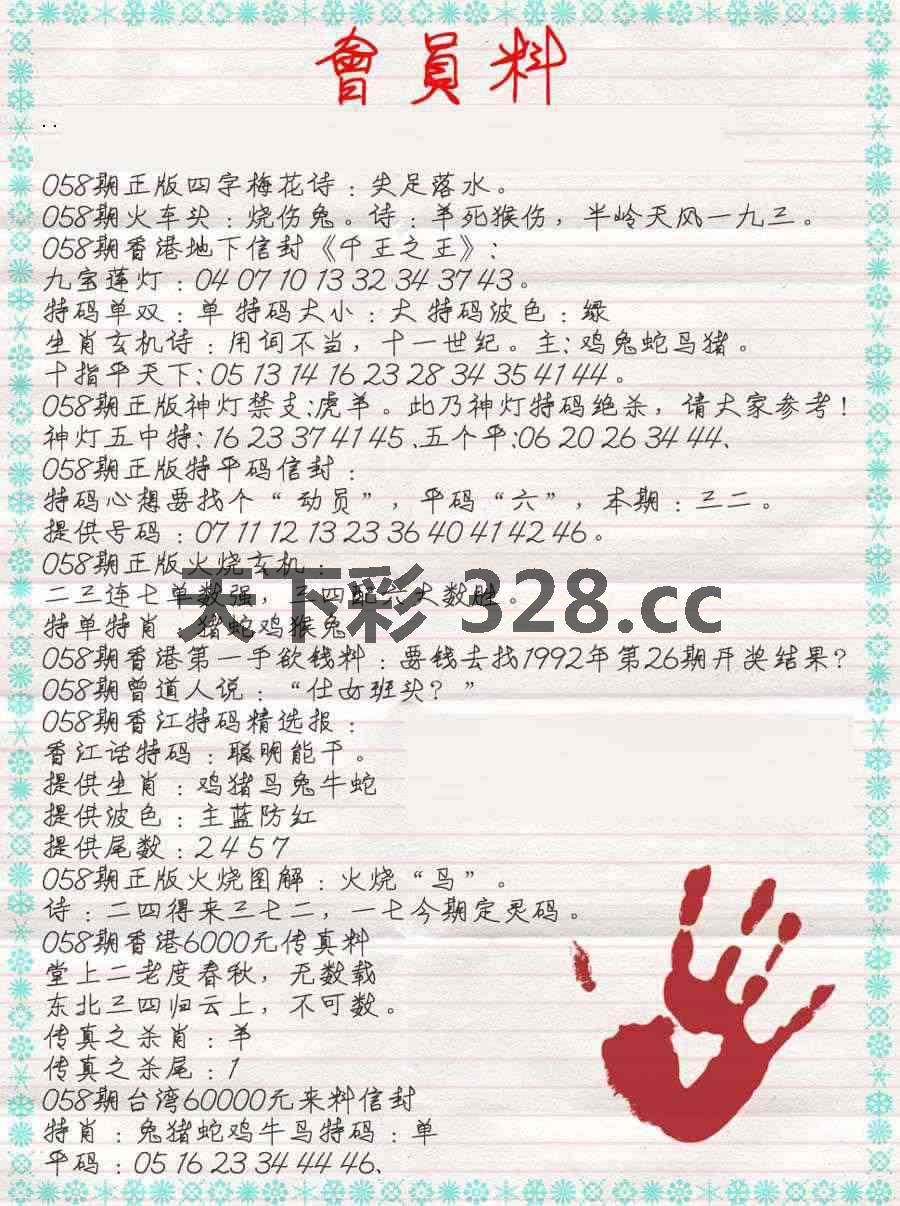 會員料
..
058期正版四字梅花诗：失足落水。
058期火车头：烧伤兔。诗：羊死猴伤，半岭天风一九三。
058期香港地下信封《千王之王》：
九宝莲灯：04 07 10 13 32 34 37 43。
特码单双：单 特码大小：大 特码波色：绿
生肖玄机诗：用词不当，十一世纪。主:鸡兔蛇马猪。
十指平天下:05 13 14 16 23 28 34 35 41 44。
058期正版神灯禁支:虎羊。此乃神灯特码绝杀，请大家参考！
神灯五中特:16 23 37 41 45、五个平:06 20 26 34 44、
058期正版特平码信封：
特码心想要找个“动员”，平码“六”，本期：三二。
提供号码：07 11 12 13 23 36 40 41 42 46。
058期正版火烧玄机：
二三连七单数强，三四配六大数胜。
天下彩 328.cc
特单特肖：猪蛇鸡猴兔
058期香港第一手欲钱料：要钱去找1992年第26期开奖结果？
058期曾道人说：“仕女班头？”
058期香江特码精选报：
香江话特码：聪明能干。
提供生肖：鸡猪马兔牛蛇
提供波色：主蓝防红
提供尾数：2 4 5 7
058期正版火烧图解：火烧“鸟”。
诗：二四得来三七二，一七今期定灵码。
058期香港6000元传真料
堂上二老度春秋，无数载
东北三四归云上，不可数。
传真之杀肖：羊
传真之杀尾：1
058期台湾60000元来料信封
特肖：兔猪蛇鸡牛马特码：单
平码：05 16 23 34 44 46、